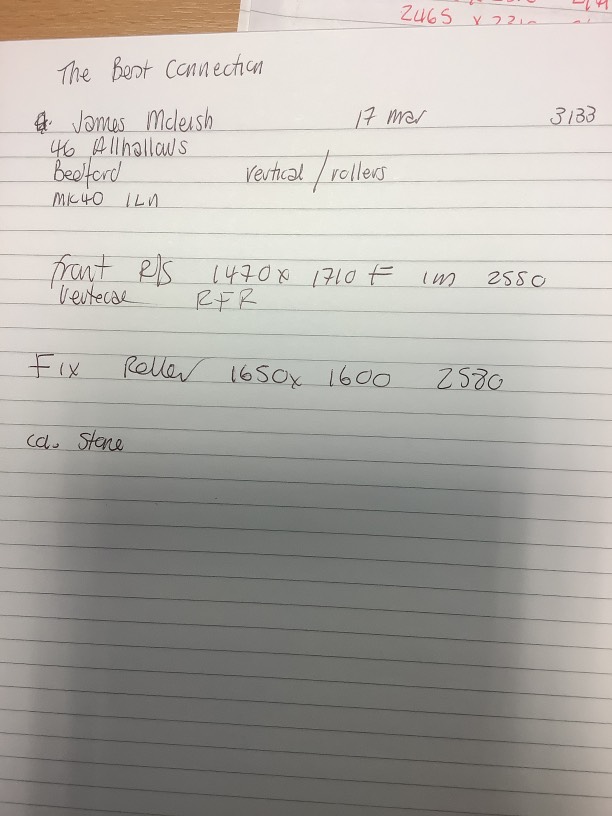 2465 x
The Best Connection
James Mcleish 17 mar 3133
46 Allhallows
Bedford vertical / rollers
MK40 1LN
front R/S 1470 x 1710 F 1m 2550
Vertecae RFR
Fix Roller 1650 x 1600 2530
col. Stone